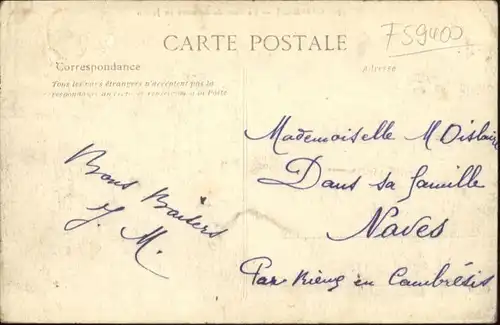 F59400
CARTE POSTALE
Correspondance
Tous les pays étrangers n'acceptent pas la
correspondance au recto se renseigner à la Poste
Adresse
Bons Baisers
J. M.
Mademoiselle M Dislaire
Dans sa famille
Naves
Par Rieux en Cambrésis